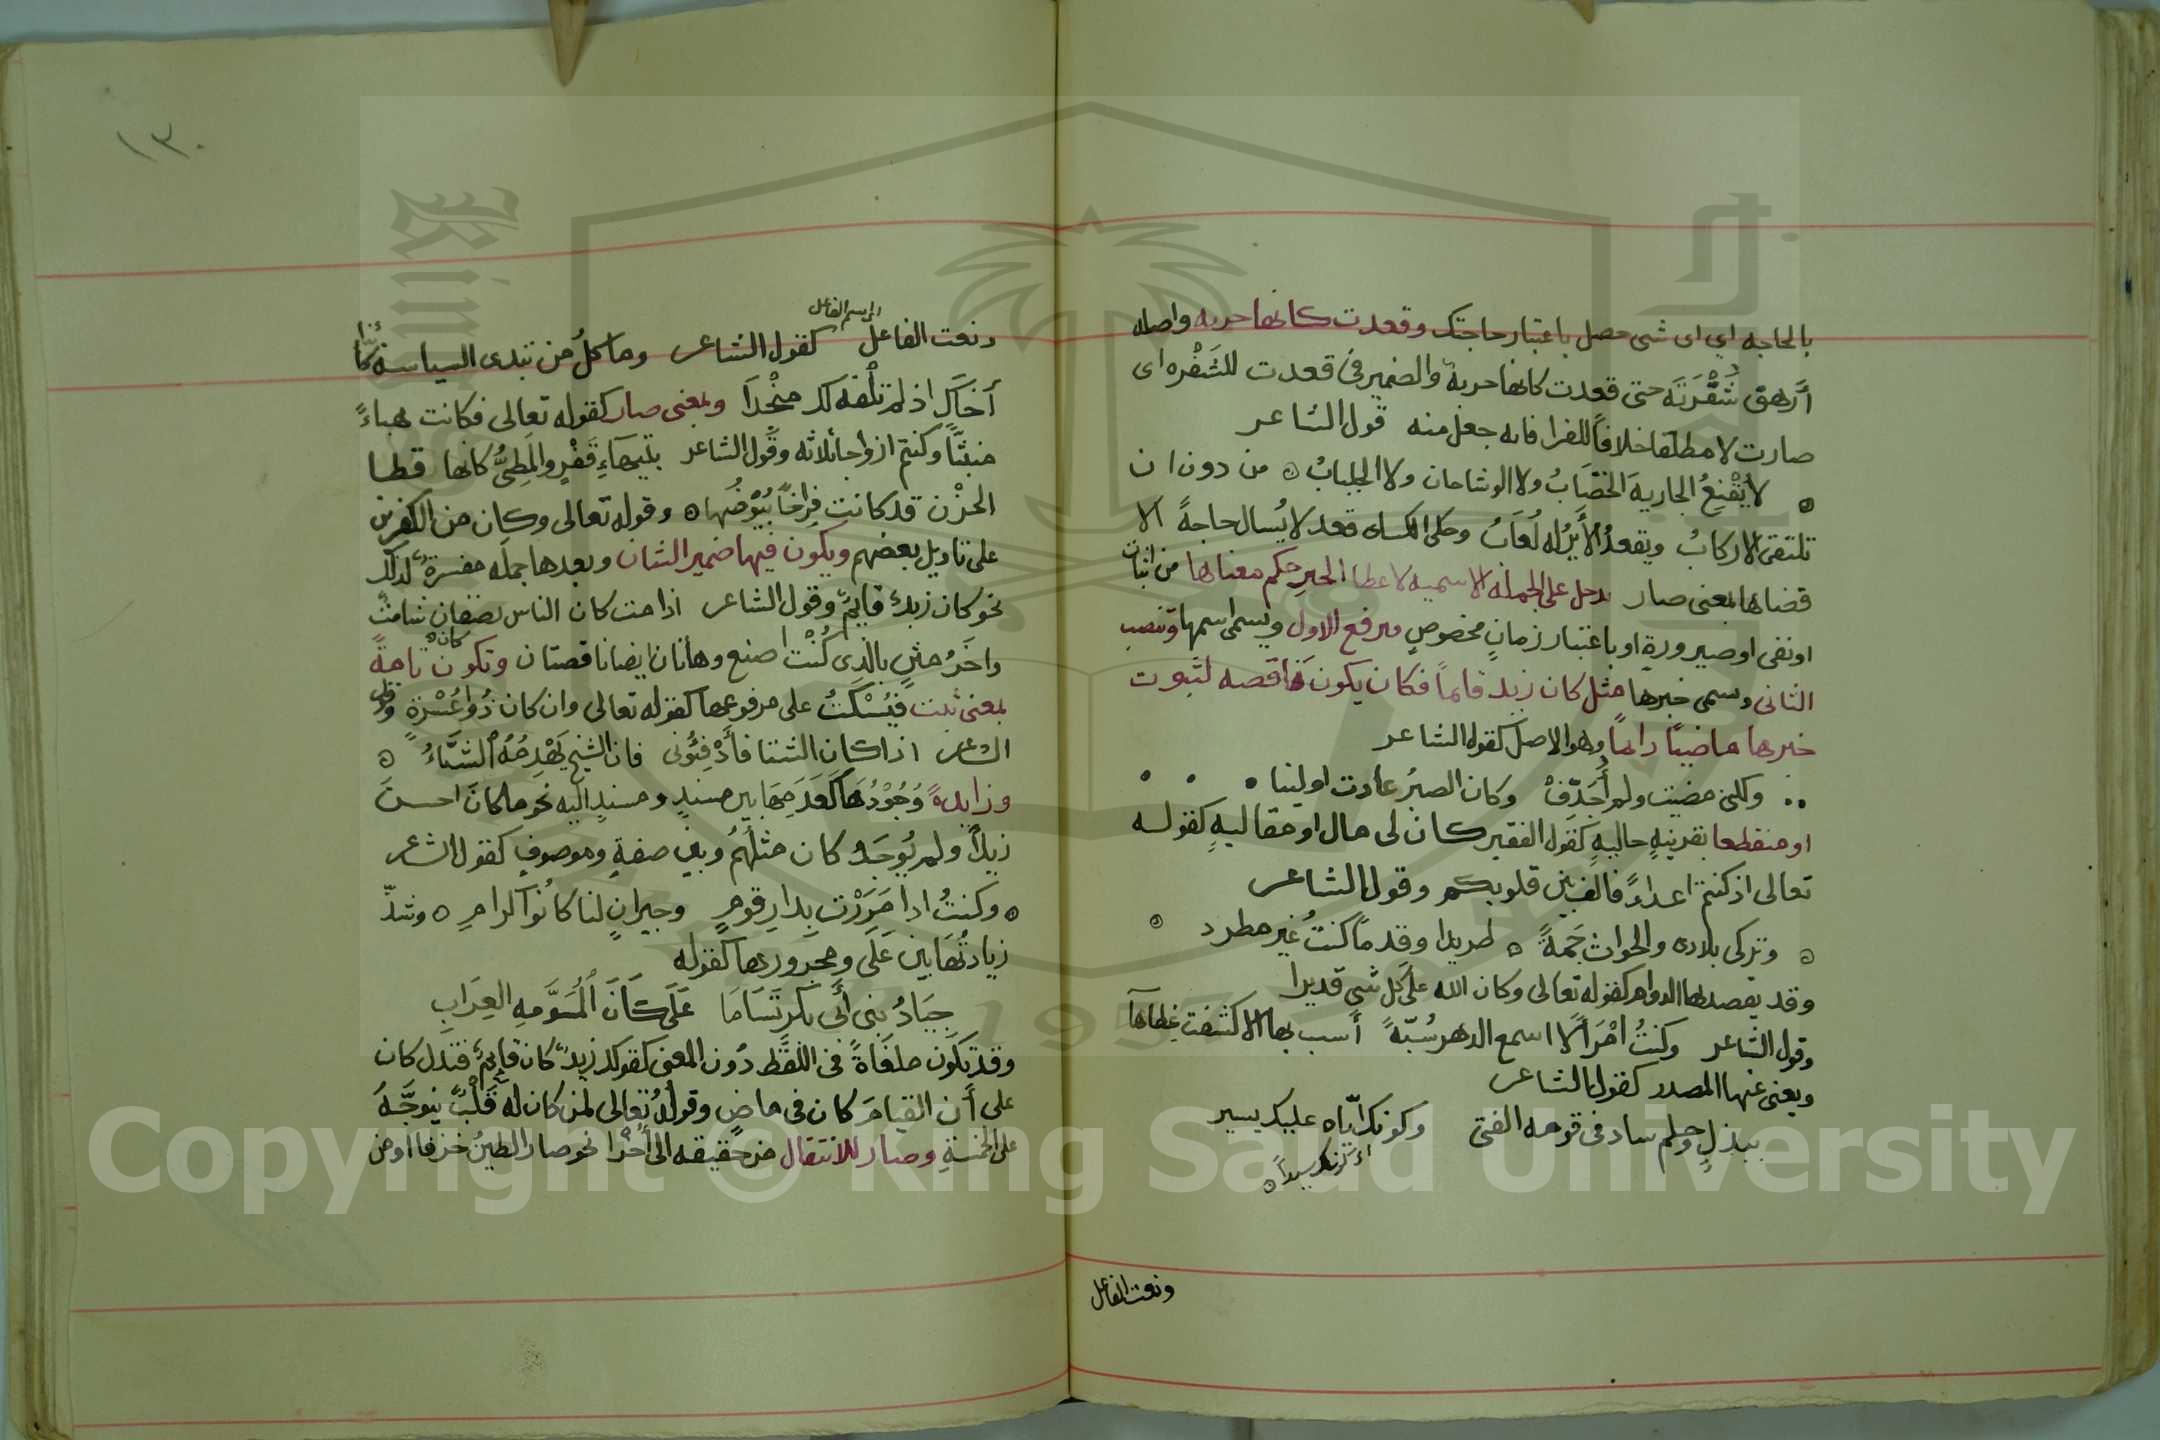 بالحاجه اي اى شى حصل باعتبار حاجتك وقعدت كانها حربه واصله
أرهق شَفْرَتَه حتى قعدت كانها حربة والضمير فى قعدت للشَفْره اى
صارت لا مطلقا خلافاً للفرا فانه جعل منه قول الشاعر
لا يُقْنِعُ الجاريه الخضَابُ ولا الوشاحان ولا الجلبابُ من دون ان
تلتقى الاركابُ ويقعدُ الأَيْرُ له لُعَابُ وحكى الكساى قعد لا يُسال حاجةً الا
قضاها بمعنى صار تدخل على الجمله الاسميه لاعطا الخبر حكم معناها من اثبات
او نفى او صيرورةٍ او باعتبار زمانٍ مخصوصٍ فترفع الاول ويسمى اسمها وتنصب
الثانى وسمى خبرها مثل كان زيد قائماً فكان يكون ناقصه لثبوت
خبرها ماضيًا دائماً وهو الاصل كقوله الشاعر
ولكنى مضيت ولم أُجَدِّفْ وكان الصبرُ عادت اولينا
او منقطعا بقرينةٍ حاليةٍ كقول الفقير كان لى مال او مقاليةٍ كقوله
تعالى اذ كنتم اعداءً فالف بين قلوبكم وقول الشاعر
وتركى بلادى والحوادث جَمةً طريدا وقدماً كنتُ غير مطرد
وقد يقصد بها الدوام كقوله تعالى وكان الله على كل شىٍ قديرا
وقول الشاعر وكنتُ امْرَأً لا اسمع الدهر سُبّةً أسب بها الا كشفت غِطاءها
ويغنى عنها المصدر كقول الشاعر
ببذلٍ وحلم ساد فى قومه الفتى وكونك ايّاه عليك يسير
ونعت الفاعل
١٣٠
ونعت الفاعل كقول الشاعر وما كلُ من تبدى البشاشه كائنا
اى اسم الفاعل
أخاك اذ لم تلْفه لك منْجدَا وبمعنى صار كقوله تعالى فكانت هباءً
منبثًّا وكنتم ازواجا ثلاثه وقول الشاعر بتيهاءِ قَفْرٍ والمَطِىُّ كانها قطا
الحزْن قد كانت فِراخاً بُيُوْضُها وقوله تعالى وكان من الكفرين
على تاويل بعضهم ويكون فيها ضمير الشان وبعدها جمله مفسرةٌ لذلك
نحو كان زيدٌ قايمٌ وقول الشاعر اذا مت كان الناس نصفان شامتٌ
واخَرُ مثنٍ بالذِى كُنْتُ اصنع وهاتان ايضا ناقصتان وتكون كان تامةً
بمعنى ثبت فيُسْكَتُ على مرفوعها كقوله تعالى وان كان ذُوا عُسْرَةٍ وقول
الشاعر اذا كان الشتا فأَدْفِئُونى فان الشيخ يَهْدِمُهُ الشتَّاءُ
وزايدهً وُجُوْدُهَا كَعَدَمِهَا بين مسندٍ ومسندٍ اليه نحو ما كان احسن
زيدًا ولم يُوجَد كان مثلُهُم وبين صفةٍ وموصوفٍ كقول الشاعر
وكنتُ اذا مَرَرْتَ بدارِ قومٍ وجيرانٍ لنا كانُوا كرامِ وشذّ
زيادتُهَا بين عَلَى ومجرورها كقوله
جِيَادُ بنى أَبى بَكرٍ تَسَامَا عَلَى كَانَ الْمُسَوَّمهِ العِرَابِ
وقد تكون ملغَاةً فى اللفظِ دُون المعنى كقولك زيدٌ كان قايمٌ فتدل كان
على أَن القيامَ كان فى ماضٍ وقولُه تعالى لمن كان له قَلْبٌ يتوجّهُ
على الخمسةِ وصار للانتقال من حقيقه الى أُخْرا نحو صار الطينُ خزفا او من